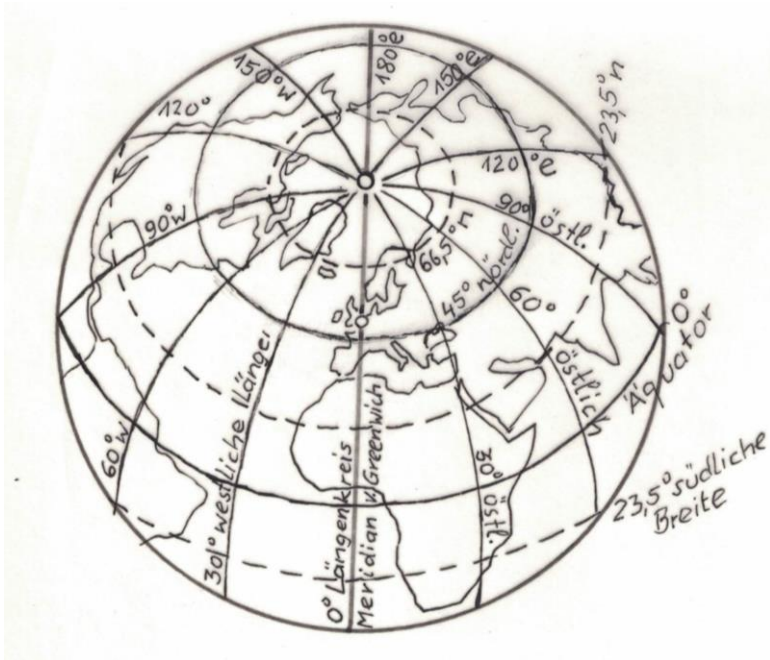 180°e
150°w
150°e
120°
23,5°n
120°e
90°w
90° östl.
66,5°n
45° nördl.
60°
östlich
0°
Äquator
60°w
301° westliche Länge
30° östl.
0° Längenkreis
Meridian v. Greenwich
23,5° südliche
Breite